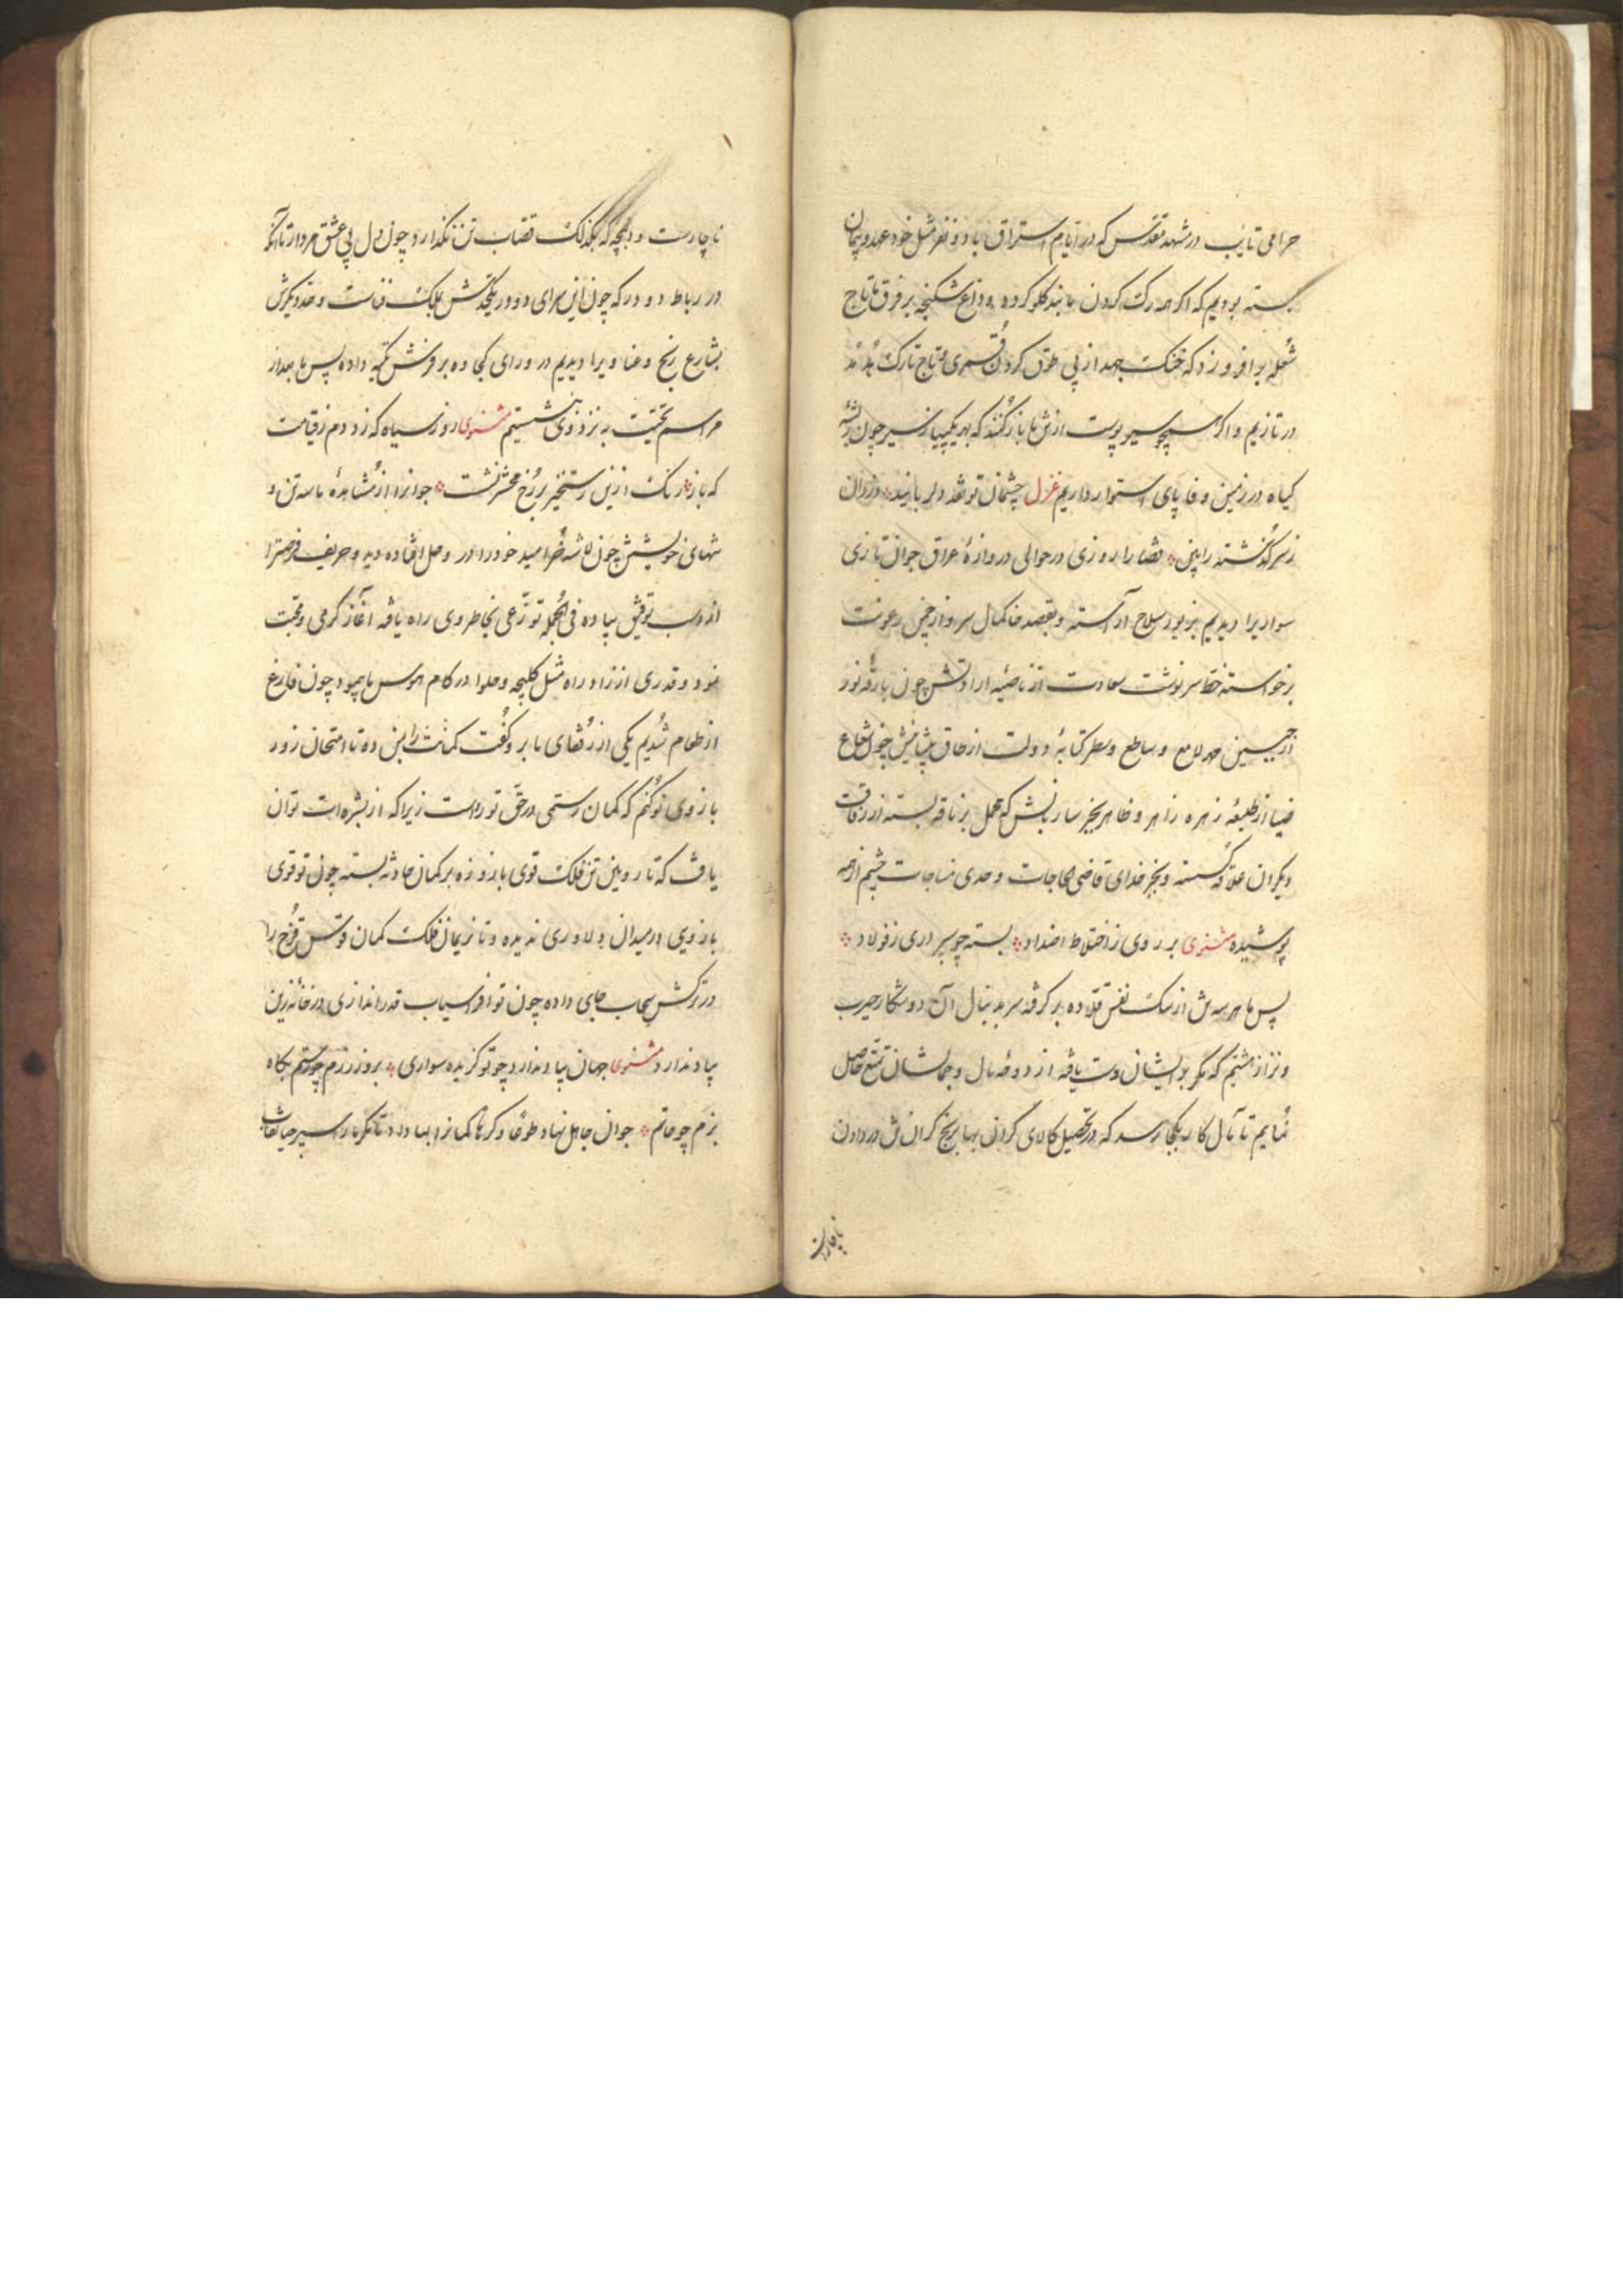 حرامی تایب در مشهد مقدس که در ایام استراق با دو نفر مثل خود عهد و پیمان
بسته بودیم که اگر همه رک گردن ما بند گلو کرده و داغ شکنجه بر فرق ما تاج
شعله برافروزد که خنک جهد از پی طوق گردن قمری و تاج تارک هدهد
در تازیم و اگر همچو سیر پوست از تن ما باز کنند که بهر یک پیاز سیر چون ریشه
گیاه در زمین وفا پای استوار داریم غزل چشمان تو شد دلربایند دزدان
ز سر گذشته را بین قضا را روزی در حوالی دروازه عراق جوان تازی
سواریرا دیدیم بزیور سلاح آراسته و بقصد خانمال سرو از چمن رعونت
برخواسته خط سرنوشت سعادت از ناصیه ارادتش چون بارقه نور
از جبین مهر لامع و ساطع و سطر کتابه دولت از طاق پیشانیش چون شعاع
ضیا از طلیعه زهره زاهر و ظاهر بجز ساربانش که محمل بر ناقه بسته از رفاقت
دیگران علاقه گسسته و بجز خدای قاضی الحاجات و حدی مناجات چشم از همه
پوشیده مثنوی بر روی ز اختلاط اضداد بسته چو سپر دری ز فولاد
پس ما هر سه تن از سک نفس قلاده بر گرفته سر بدنبال آن دو شکار چرب
و نزار هشتیم که مگر بر ایشان دست یافته از دوحه مال و جمالشان تمتع حاصل
نمایم تا مآل کار بکجا رسد که در تحصیل کالای گرانی بها برنج گران تن در دادن
ناچارست
ناچارست و دلبچه که بگذلک قصاب تن نگذارد چون دل پی عشق مردار تا آنکه
در رباط دو در که چون این سرای دو در یکحدش بملک فناست و حد دیگرش
بشارع رنج و عنا ویرا دیدیم در ورای کجاوه بر فرش تکیه داده پس ما بعد از
مراسم تحیت بنزد وی بنشستیم مثنوی روز سیاه که زد دم ز قیامت
که باز رنک ازین رستخیز بر رخ محشر نشست جوانرا از مشاهده ما سه تن و
تنهای خویشتن چون لاشه خر امید خود را در وحل افتاده دید و حریف فرصترا
از اسب توفیق پیاده فی الجمله توزعی بخاطر وی راه یافته آغاز گرمی و محبت
نمود و قدری از زاد راه مثل کلیچه و حلوا در کام هوس ما پیمود چون فارغ
از طعام شدیم یکی از رفقای ما برو گفت کمانت را بمن ده تا امتحان زور
بازوی تو کنم که کمان رستمی در حق تو رواست زیرا که از بشره ات توان
یافت که تا رویین تن فلک قوی بازو زه بر کمان حادثه بسته چون تو قوی
بازویی در میدان دلاوری ندیده و تا نریمان فلک کمان قوس قزح را
در ترکش سحاب جای داده چون تو افراسیاب قدراندازی در خانه زین
بیاد ندارد مثنوی جهان بیاد ندارد چو تو گزیده سواری بروز رزم چو رستم بگاه
بزم چو حاتم جوان جاهل نهاد طوعا و کرها کمانرا بما داد